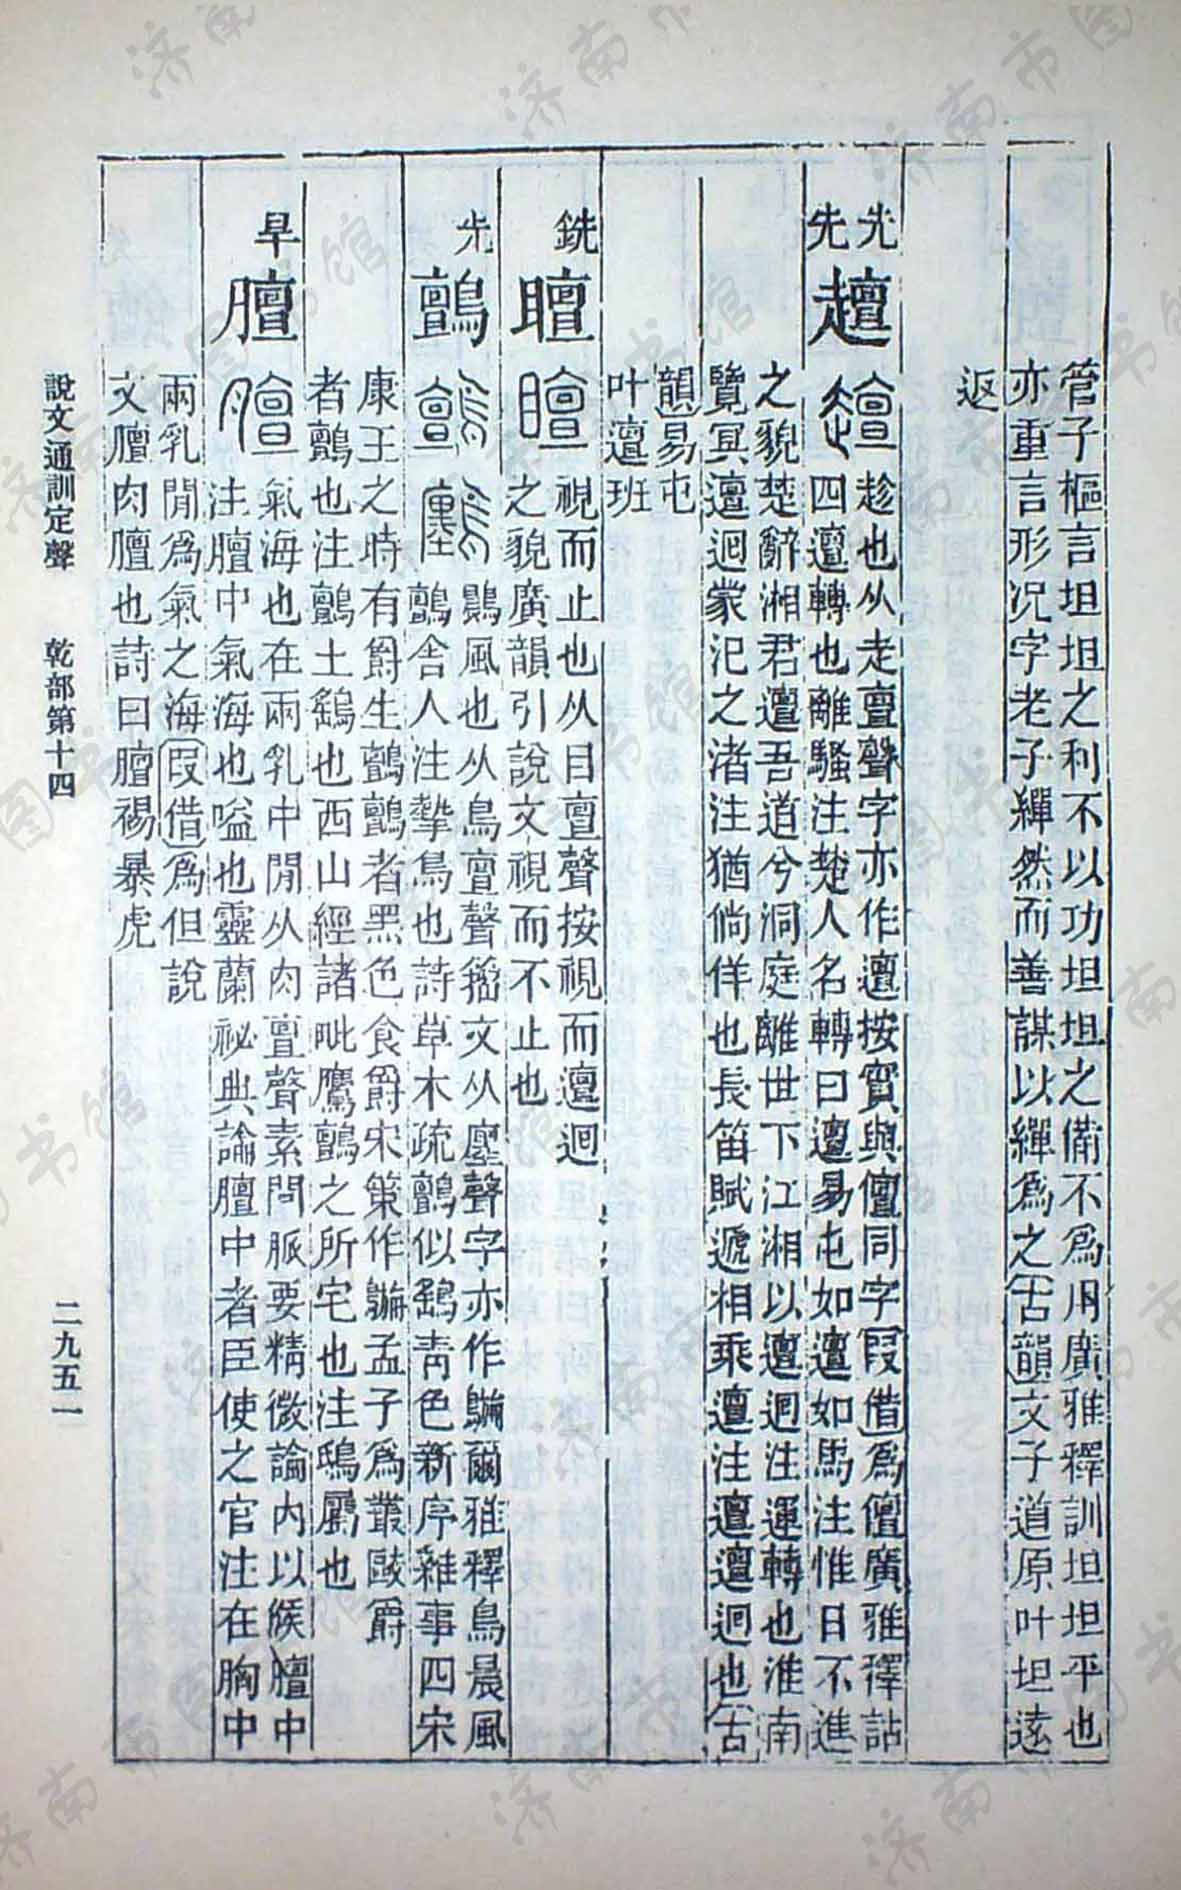 管子樞言坦坦之利不以功坦坦之備不爲用廣雅釋訓坦坦平也
亦重言形況字老子繟然而善謀以繟爲之古韻文子道原叶坦遠
返
先先
趲
趁也从走亶聲字亦作邅按實與儃同字叚借爲儃廣雅釋詁
四邅轉也離騷注楚人名轉曰邅易屯如邅如馬注惟日不進
之貌楚辭湘君邅吾道兮洞庭離世下江湘以邅迴注運轉也淮南
覽冥邅迴蒙汜之渚注猶倘佯也長笛賦遞相乘邅注邅邅迴也古
韻易屯
叶邅班
銑
䁴
視而止也从目亶聲按視而邅迴
之貌廣韻引說文視而不止也
先
鸇
鷐風也从鳥亶聲籒文从廛聲字亦作鸇爾雅釋鳥晨風
鸇舍人注摯鳥也詩草木疏鸇似鷂青色新序雜事四宋
康王之時有爵生鸇鸇者黑色食爵宋策作孟子爲叢敺爵
者鸇也注鸇土鷂也西山經諸毗鷹鸇之所宅也注鴟屬也
旱
膻
氣海也在兩乳中閒从肉亶聲素問脈要精微論內以候膻中
注膻中氣海也嗌也靈蘭祕典論膻中者臣使之官注在胸中
兩乳閒爲氣之海叚借爲但說
文膻肉膻也詩曰膻裼暴虎
說文通訓定聲 乾部第十四 二九五一